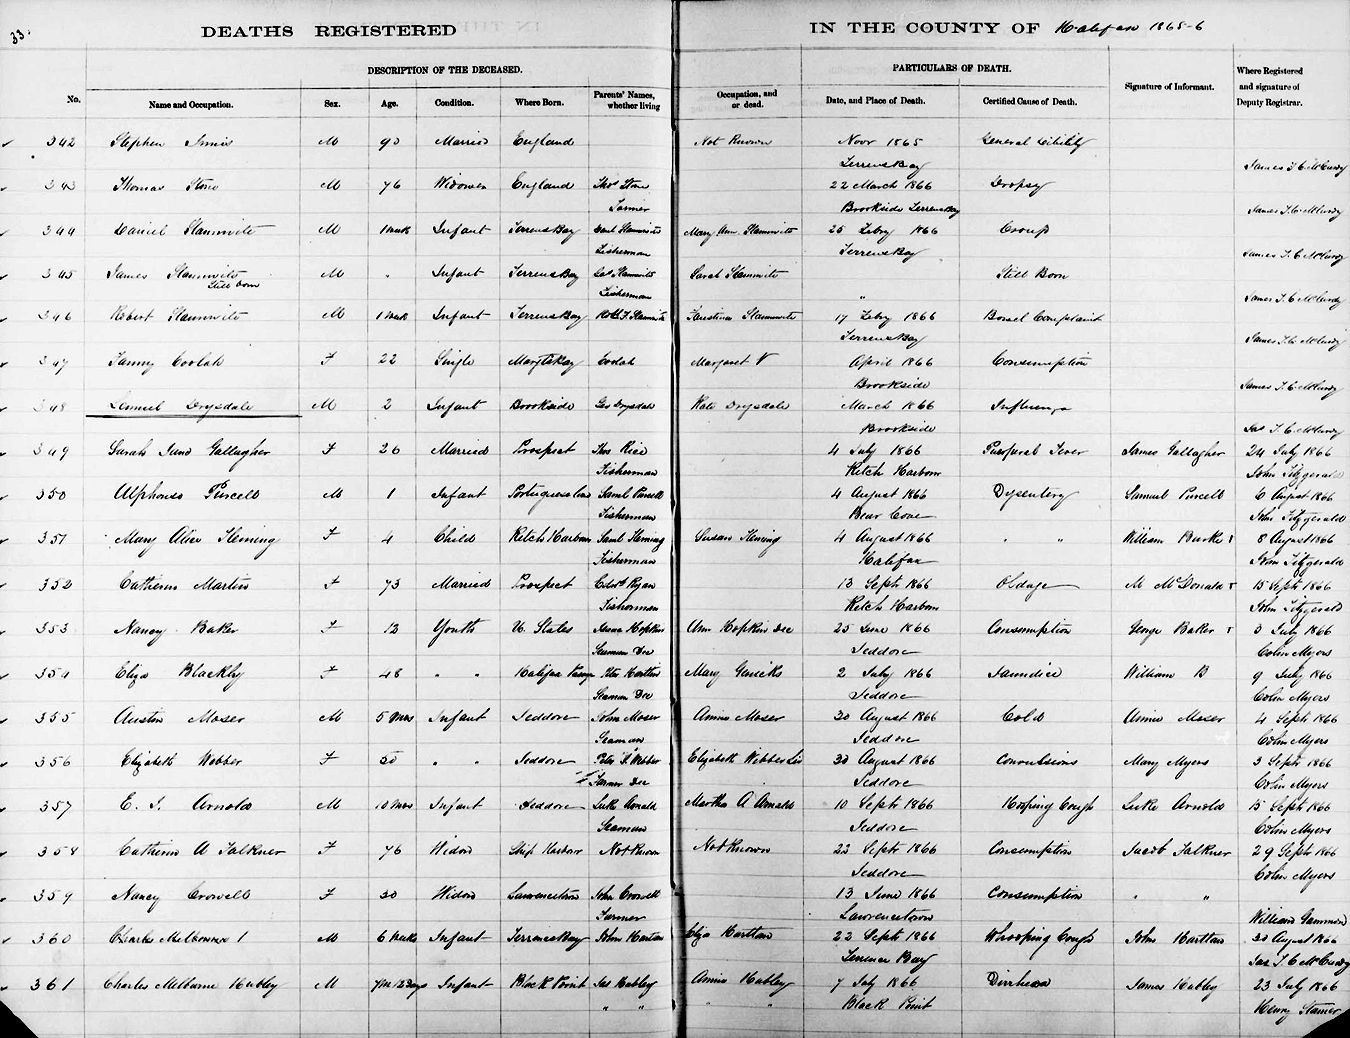 33.
DEATHS REGISTERED IN THE COUNTY OF Halifax 1865-6
DESCRIPTION OF THE DECEASED. PARTICULARS OF DEATH.
No. Name and Occupation. Sex. Age. Condition. Where Born. Parents' Names, whether living Occupation, and or dead. Date, and Place of Death. Certified Cause of Death. Signature of Informant. Where Registered and signature of Deputy Registrar.
342 Stephen M 90 Married England Not Known Novr 1865 General Debility
Terrence Bay James T. C. McCurdy
343 Thomas Stone M 76 Widower England Thos Stone 22 March 1866 Dropsy
Farmer Brookside Terrence Bay James T. C. McCurdy
344 Daniel Slaunwite M 1 Week Infant Terrence Bay Danl Slaunwite Mary Ann Slaunwite 25 Febry 1866 Croup
Fisherman Terrence Bay James T. C. McCurdy
345 James Slaunwite M " Infant Terrence Bay Slaunwite Sarah Slaunwite Still Born
Still born
Fisherman " James T. C. McCurdy
346 Robert Slaunwite M 1 Week Infant Terrence Bay Slaunwite Slaunwite 17 Febry 1866 Bowel Complaint
Terrence Bay James T. C. McCurdy
347 Fanny Coolah F 22 Single Coolah Margaret " April 1866 Consumption
Brookside James T. C. McCurdy
348 Lemuel Drysdale M 2 Infant Brookside Geo Drysdale Kate Drysdale March 1866 Influenza
Brookside Jas T. C. McCurdy
349 Sarah Jane Gallagher F 26 Married Prospect Thos Rice 4 July 1866 Puerperal Fever James Gallagher 24 July 1866
Fisherman Ketch Harbour John Fitzgerald
350 Alphonso Purcell M 1 Infant Portuguese Cove Saml Purcell 4 August 1866 Dysentery Samuel Purcell 6 August 1866
Fisherman Bear Cove John Fitzgerald
351 Mary Alice Fleming F 4 Child Ketch Harbour Saml Fleming Susan Fleming 4 August 1866 " " William Burke 8 August 1866
Fisherman Halifax John Fitzgerald
352 Catherine Martin F 73 Married Prospect Edwd Ryan 13 Septr 1866 Old age M McDonald 15 Septr 1866
Fisherman Ketch Harbour John Fitzgerald
353 Nancy Baker F 12 Youth U. States Hopkins Ann Hopkins Dec 25 June 1866 Consumption George Baker 3 July 1866
Seaman Dec Jeddore Colin Myers
354 Eliza Blackly F 48 " " Halifax Peter Mary 2 July 1866 Jaundice William B 9 July 1866
Seaman Dec Jeddore Colin Myers
355 Austin Moser M 5 Mos Infant Jeddore John Moser Annie Moser 20 August 1866 Cold Annie Moser 4 Septr 1866
Seaman Jeddore Colin Myers
356 Elizabeth Webber F 50 " " Jeddore Peter Webber Elizabeth Webber 30 August 1866 Convulsions Mary Myers 3 Septr 1866
Farmer Dec Jeddore Colin Myers
357 E. S. Arnold M 10 Mos Infant Jeddore Luke Arnold Martha A Arnold 10 Septr 1866 Hooping Cough Luke Arnold 15 Septr 1866
Seaman Jeddore Colin Myers
358 Catherine A Falkner F 76 Widow Ship Harbour Not Known Not Known 22 Septr 1866 Consumption Jacob Falkner 29 Septr 1866
Jeddore Colin Myers
359 Nancy Crowell F 30 Widow Lawrencetown John Crowell 13 June 1866 Consumption " "
Farmer Lawrencetown William Gammon
360 Charles Melbourne M 6 Weeks Infant Terrence Bay John Hartlan Eliza Hartlan 22 Septr 1866 Whooping Cough John Hartlan 30 August 1866
Terrence Bay Jas T. C. McCurdy
361 Charles Melbourne Hubley M 7m 23 days Infant Black Point Jas Hubley Annie Hubley 7 July 1866 Diarrhoea James Hubley 23 July 1866
" " " " Black Point Henry Stamer